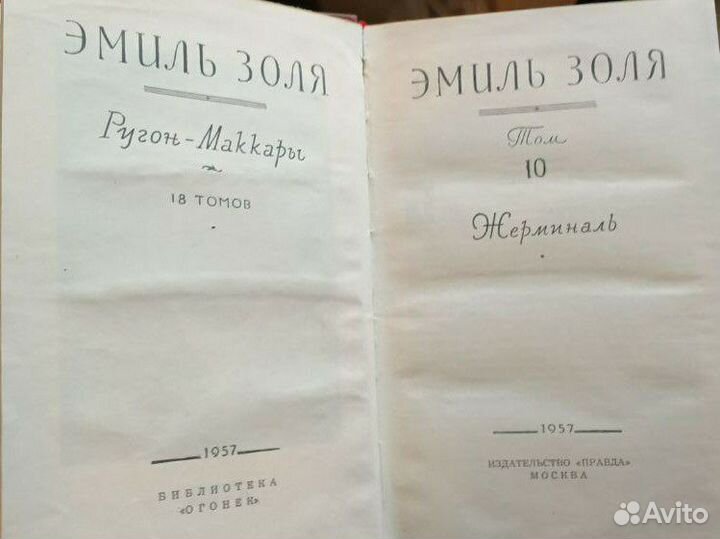 ЭМИЛЬ ЗОЛЯ
Ругон-Маккары
18 ТОМОВ
1957
БИБЛИОТЕКА
«ОГОНЕК»
ЭМИЛЬ ЗОЛЯ
Том
10
Жерминаль
1957
ИЗДАТЕЛЬСТВО «ПРАВДА»
МОСКВА
Avito